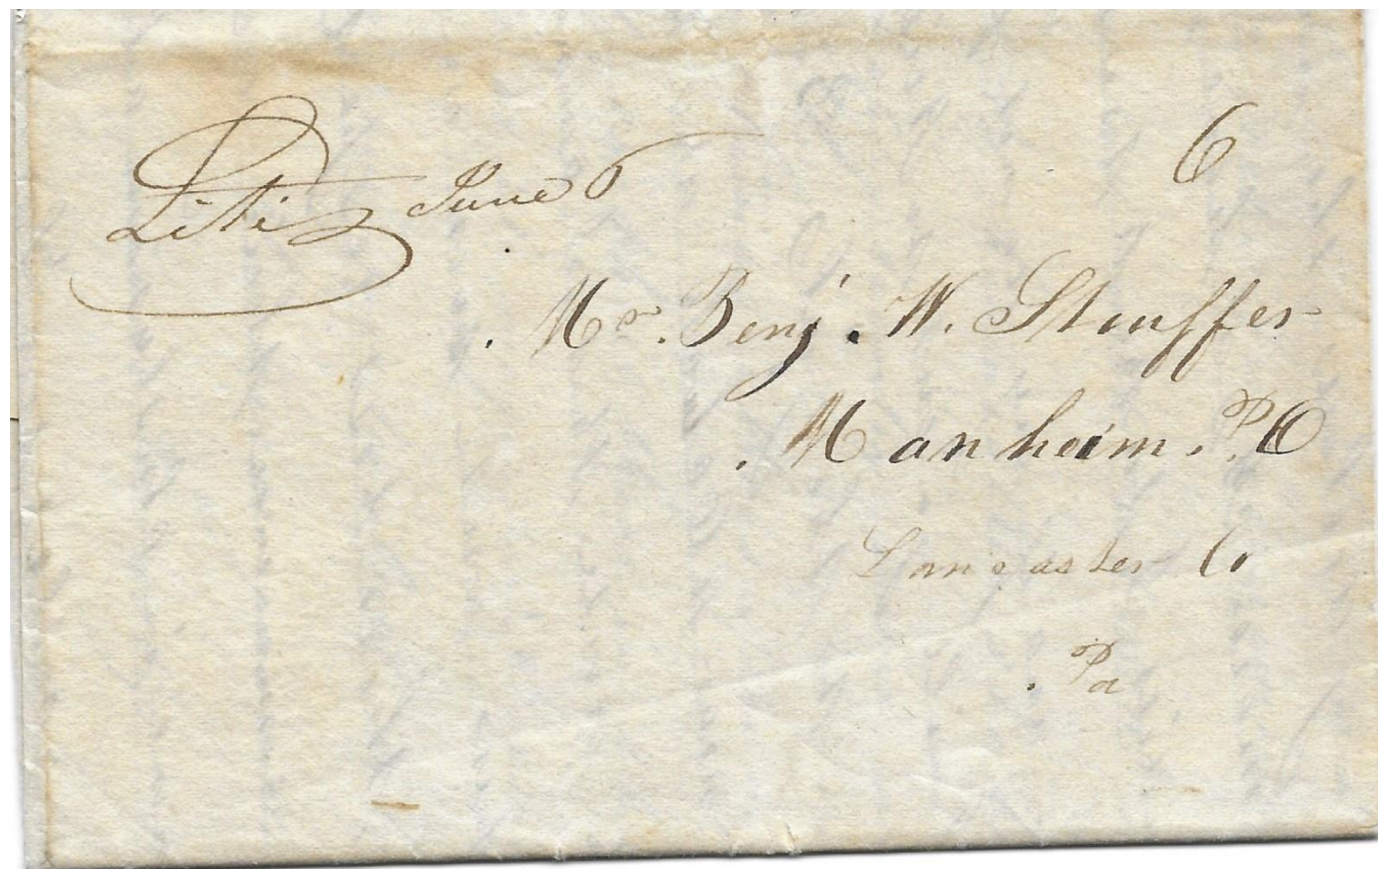 Litiz June 6
6
Mr. Benj. W. Stauffer
Manheim. P.O
Lancaster Co
Pa